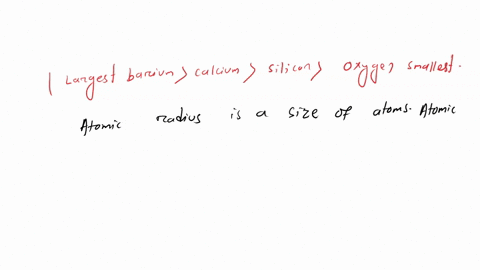 | Largest barium > calcium > silicon > oxygen smallest.
Atomic radius is a size of atoms. Atomic